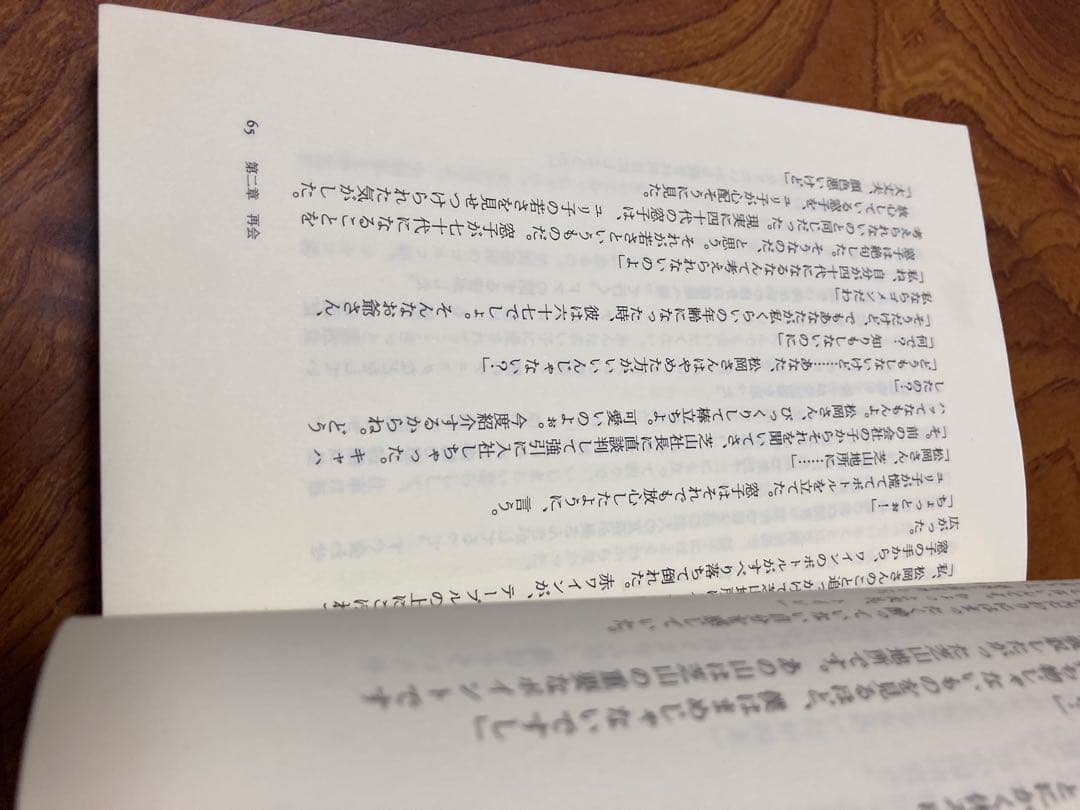 「私、松岡さんのこと追っかけてさ
窓子の手から、ワインのボトルがすべり落ちて倒れた。赤ワインが、テーブルの上に
広がった。
「ちょっとぉ！」
ユリ子が慌ててボトルを立てた。窓子はそれでも放心したように、言う。
「松岡さん、芝山地所に……」
「そ。前の会社の子からそれを聞いてさ、芝山社長に直談判して強引に入社しちゃった。キャハ
ハってなもんよ。松岡さん、びっくりして棒立ちよ。可愛いのよぉ。今度紹介するからね。どう
したの？」
「どうもしないけど……あなた、松岡さんはやめた方がいいんじゃない？」
「何で？知りもしないのに」
「そうだけど、でもあなたが私くらいの年齢になった時、彼は六十七でしょ。そんなお爺さん、
私ならゴメンだわ」
「私ね、自分が四十代になるなんて考えられないのよ」
窓子は絶句した。そうなのだ、と思う。それが若さというものだ。窓子が七十代になることを
考えられないのと同じだった。現実に四十代の窓子は、ユリ子の若さを見せつけられた気がした。
放心している窓子を、ユリ子が心配そうに見た。
「大丈夫、顔色悪いけど」
65 第二章 再会
あの山は芝山の重要なポイントです
僕はまめじゃないですし」